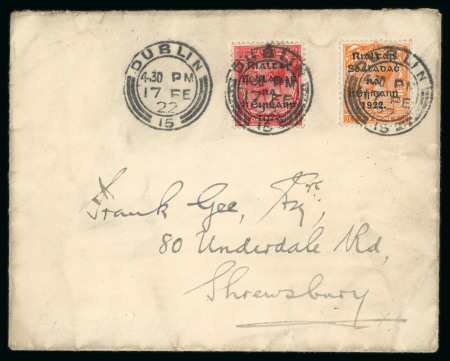 DUBLIN
4.30 PM
17 FE
22
15
Rialtas
Sealadac
na
hÉireann
1922.
DUBLIN
15
Rialtas
Sealadac
na
hÉireann
1922.
Frank Gee, Esq,
80 Underdale Rd,
Shrewsbury